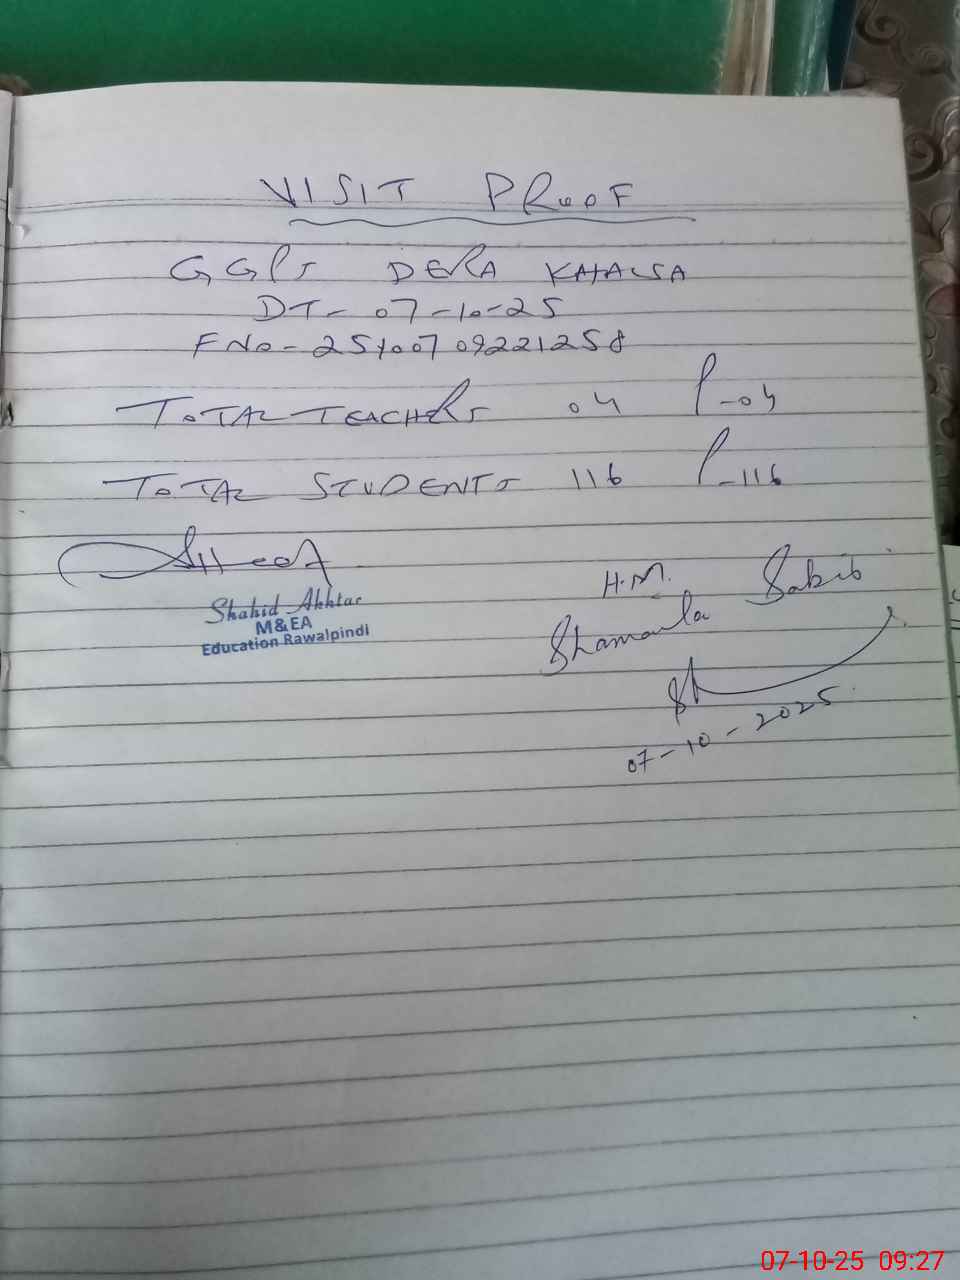 VISIT PROOF
GGPS DERA KHALSA
DT- 07-10-25
F NO- 25100709221258
TOTAL TEACHERS 04 P-04
TOTAL STUDENTS 116 P-116
Shahid Akhtar
M&EA
Education Rawalpindi
H.M.
Shamaila Sabir
07-10-2025
07-10-25 09:27